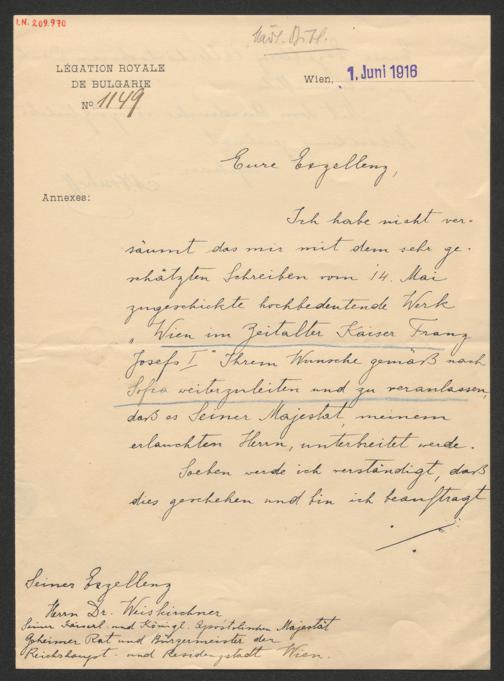 I.N. 209.970
Städt. Bibl.
LÉGATION ROYALE
DE BULGARIE
No. 1149
Wien, 1. Juni 1916
Eure Exzellenz,
Annexes:
Ich habe nicht ver-
säumt das mir mit dem sehr ge-
schätzten Schreiben vom 14. Mai
zugeschickte hochbedeutende Werk
„Wien im Zeitalter Kaiser Franz
Josefs I" Ihrem Wunsche gemäß nach
Sofia weiterzuleiten und zu veranlassen,
daß es Seiner Majestät, meinem
erlauchten Herrn, unterbreitet werde.
Soeben werde ich verständigt, daß
dies geschehen und bin ich beauftragt
./.
Seiner Exzellenz
Herrn Dr. Weiskirchner
Seiner Kaiserl. und Königl. Apostolischen Majestät
Geheimer Rat und Bürgermeister der
Reichshaupt- und Residenzstadt Wien.